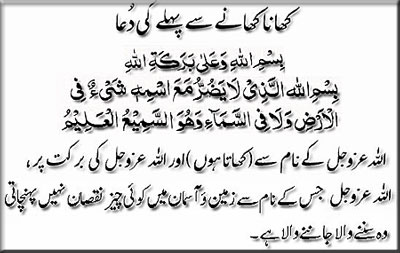 کھانا کھانے سے پہلے کی دُعا
بِسْمِ اللّٰهِ وَعَلٰی بَرَكَةِ اللّٰهِ
بِسْمِ اللّٰهِ الَّذِیْ لَا یَضُرُّ مَعَ اسْمِهٖ شَیْءٌ فِی
الْاَرْضِ وَلَا فِی السَّمَآءِ وَهُوَ السَّمِیْعُ الْعَلِیْمُ
اللہ عزوجل کے نام سے (کھاتا ہوں) اور اللہ عزوجل کی برکت پر،
اللہ عزوجل جس کے نام سے زمین و آسمان میں کوئی چیز نقصان نہیں پہنچاتی
وہ سننے والا جاننے والا ہے۔